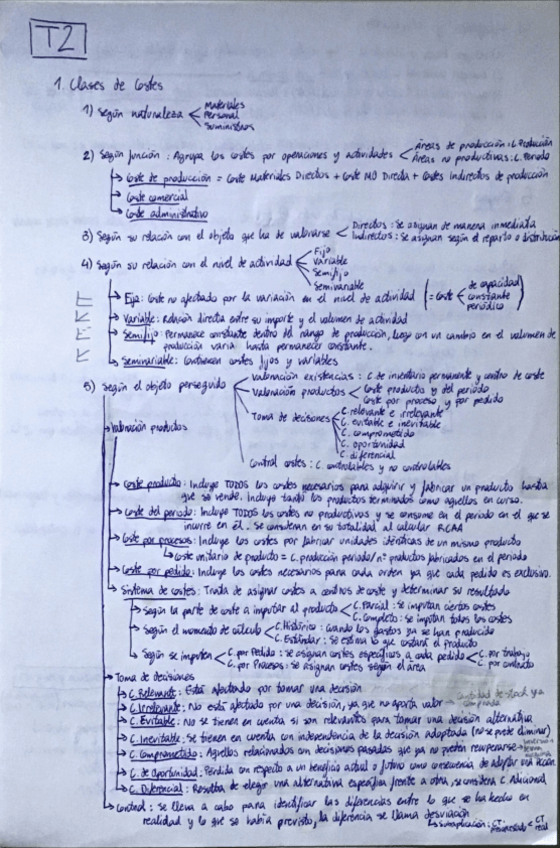 T2
1. Clases de Costes
1) Según naturaleza < Materiales
Personal
Suministros
2) Según función: Agrupa los costes por operaciones y actividades < Áreas de producción: C. Producción
Áreas no productivas: C. Periodo
↳ Coste de producción = Coste Materiales Directos + Coste MO Directa + Costes Indirectos de producción
↳ Coste comercial
↳ Coste administrativo
3) Según su relación con el objeto que ha de valorarse < Directos: se asignan de manera inmediata
Indirectos: Se asignan según el reparto o distribución
4) Según su relación con el nivel de actividad < Fijo
Variable
Semifijo
Semivariable
↳ Fijo: Coste no afectado por la variación en el nivel de actividad (= Coste < de capacidad
constante
periódico)
↳ Variable: Relación directa entre su importe y el volumen de actividad
↳ Semifijo: Permanece constante dentro del rango de producción, luego con un cambio en el volumen de
producción varía hasta permanecer constante.
↳ Semivariable: Contienen costes fijos y variables
5) Según el objeto perseguido < Valoración existencias: C. de inventario permanente y centro de coste
Valoración productos < Coste producto y del periodo
Coste por proceso y por pedido
Toma de decisiones < C. relevante e irrelevante
C. evitable e inevitable
C. comprometido
C. oportunidad
C. diferencial
Control costes: C. controlables y no controlables
Valoración productos
↳ Coste producto: Incluye TODOS los costes necesarios para adquirir y fabricar un producto hasta
que se vende. Incluye tanto los productos terminados como aquellos en curso.
↳ Coste del periodo: Incluye TODOS los costes no productivos y se consume en el periodo en el que se
incurre en él. Se consideran en su totalidad al calcular RCAA
↳ Coste por procesos: Incluye los costes por fabricar unidades idénticas de un mismo producto
↳ Coste unitario de producto = C. producción periodo / nº productos fabricados en el periodo
↳ Coste por pedido: Incluye los costes necesarios para cada orden ya que cada pedido es exclusivo.
↳ Sistema de costes: Trata de asignar costes a centros de coste y determinar su resultado
↳ Según la parte de coste a imputar al producto < C. Parcial: se imputan ciertos costes
C. Completo: se imputan todos los costes
↳ Según el momento de cálculo < C. Histórico: cuando los gastos ya se han producido
C. Estándar: Se estima lo que costará el producto
↳ Según se imputen < C. por Pedido: se asignan costes específicos a cada pedido < C. por trabajo
C. por contrato
C. por Procesos: se asignan costes según el área
Toma de decisiones
↳ C. Relevante: Está afectado por tomar una decisión
↳ C. Irrelevante: No está afectado por una decisión, ya que no aporta valor → cantidad de stock ya
comprada
↳ C. Evitable: No se tienen en cuenta si son relevantes para tomar una decisión alternativa
↳ C. Inevitable: Se tienen en cuenta con independencia de la decisión adoptada (no se puede eliminar)
↳ C. Comprometido: Aquellos relacionados con decisiones pasadas que ya no pueden recuperarse →
↳ C. de oportunidad: Pérdida con respecto a un beneficio actual o futuro como consecuencia de adoptar una acción
↳ C. Diferencial: Resulta de elegir una alternativa específica frente a otra, se considera C. Adicional
↳ Control: se lleva a cabo para identificar las diferencias entre lo que se ha hecho en
realidad y lo que se había previsto, la diferencia se llama desviación
↳ Subaplicación: CT < CT real